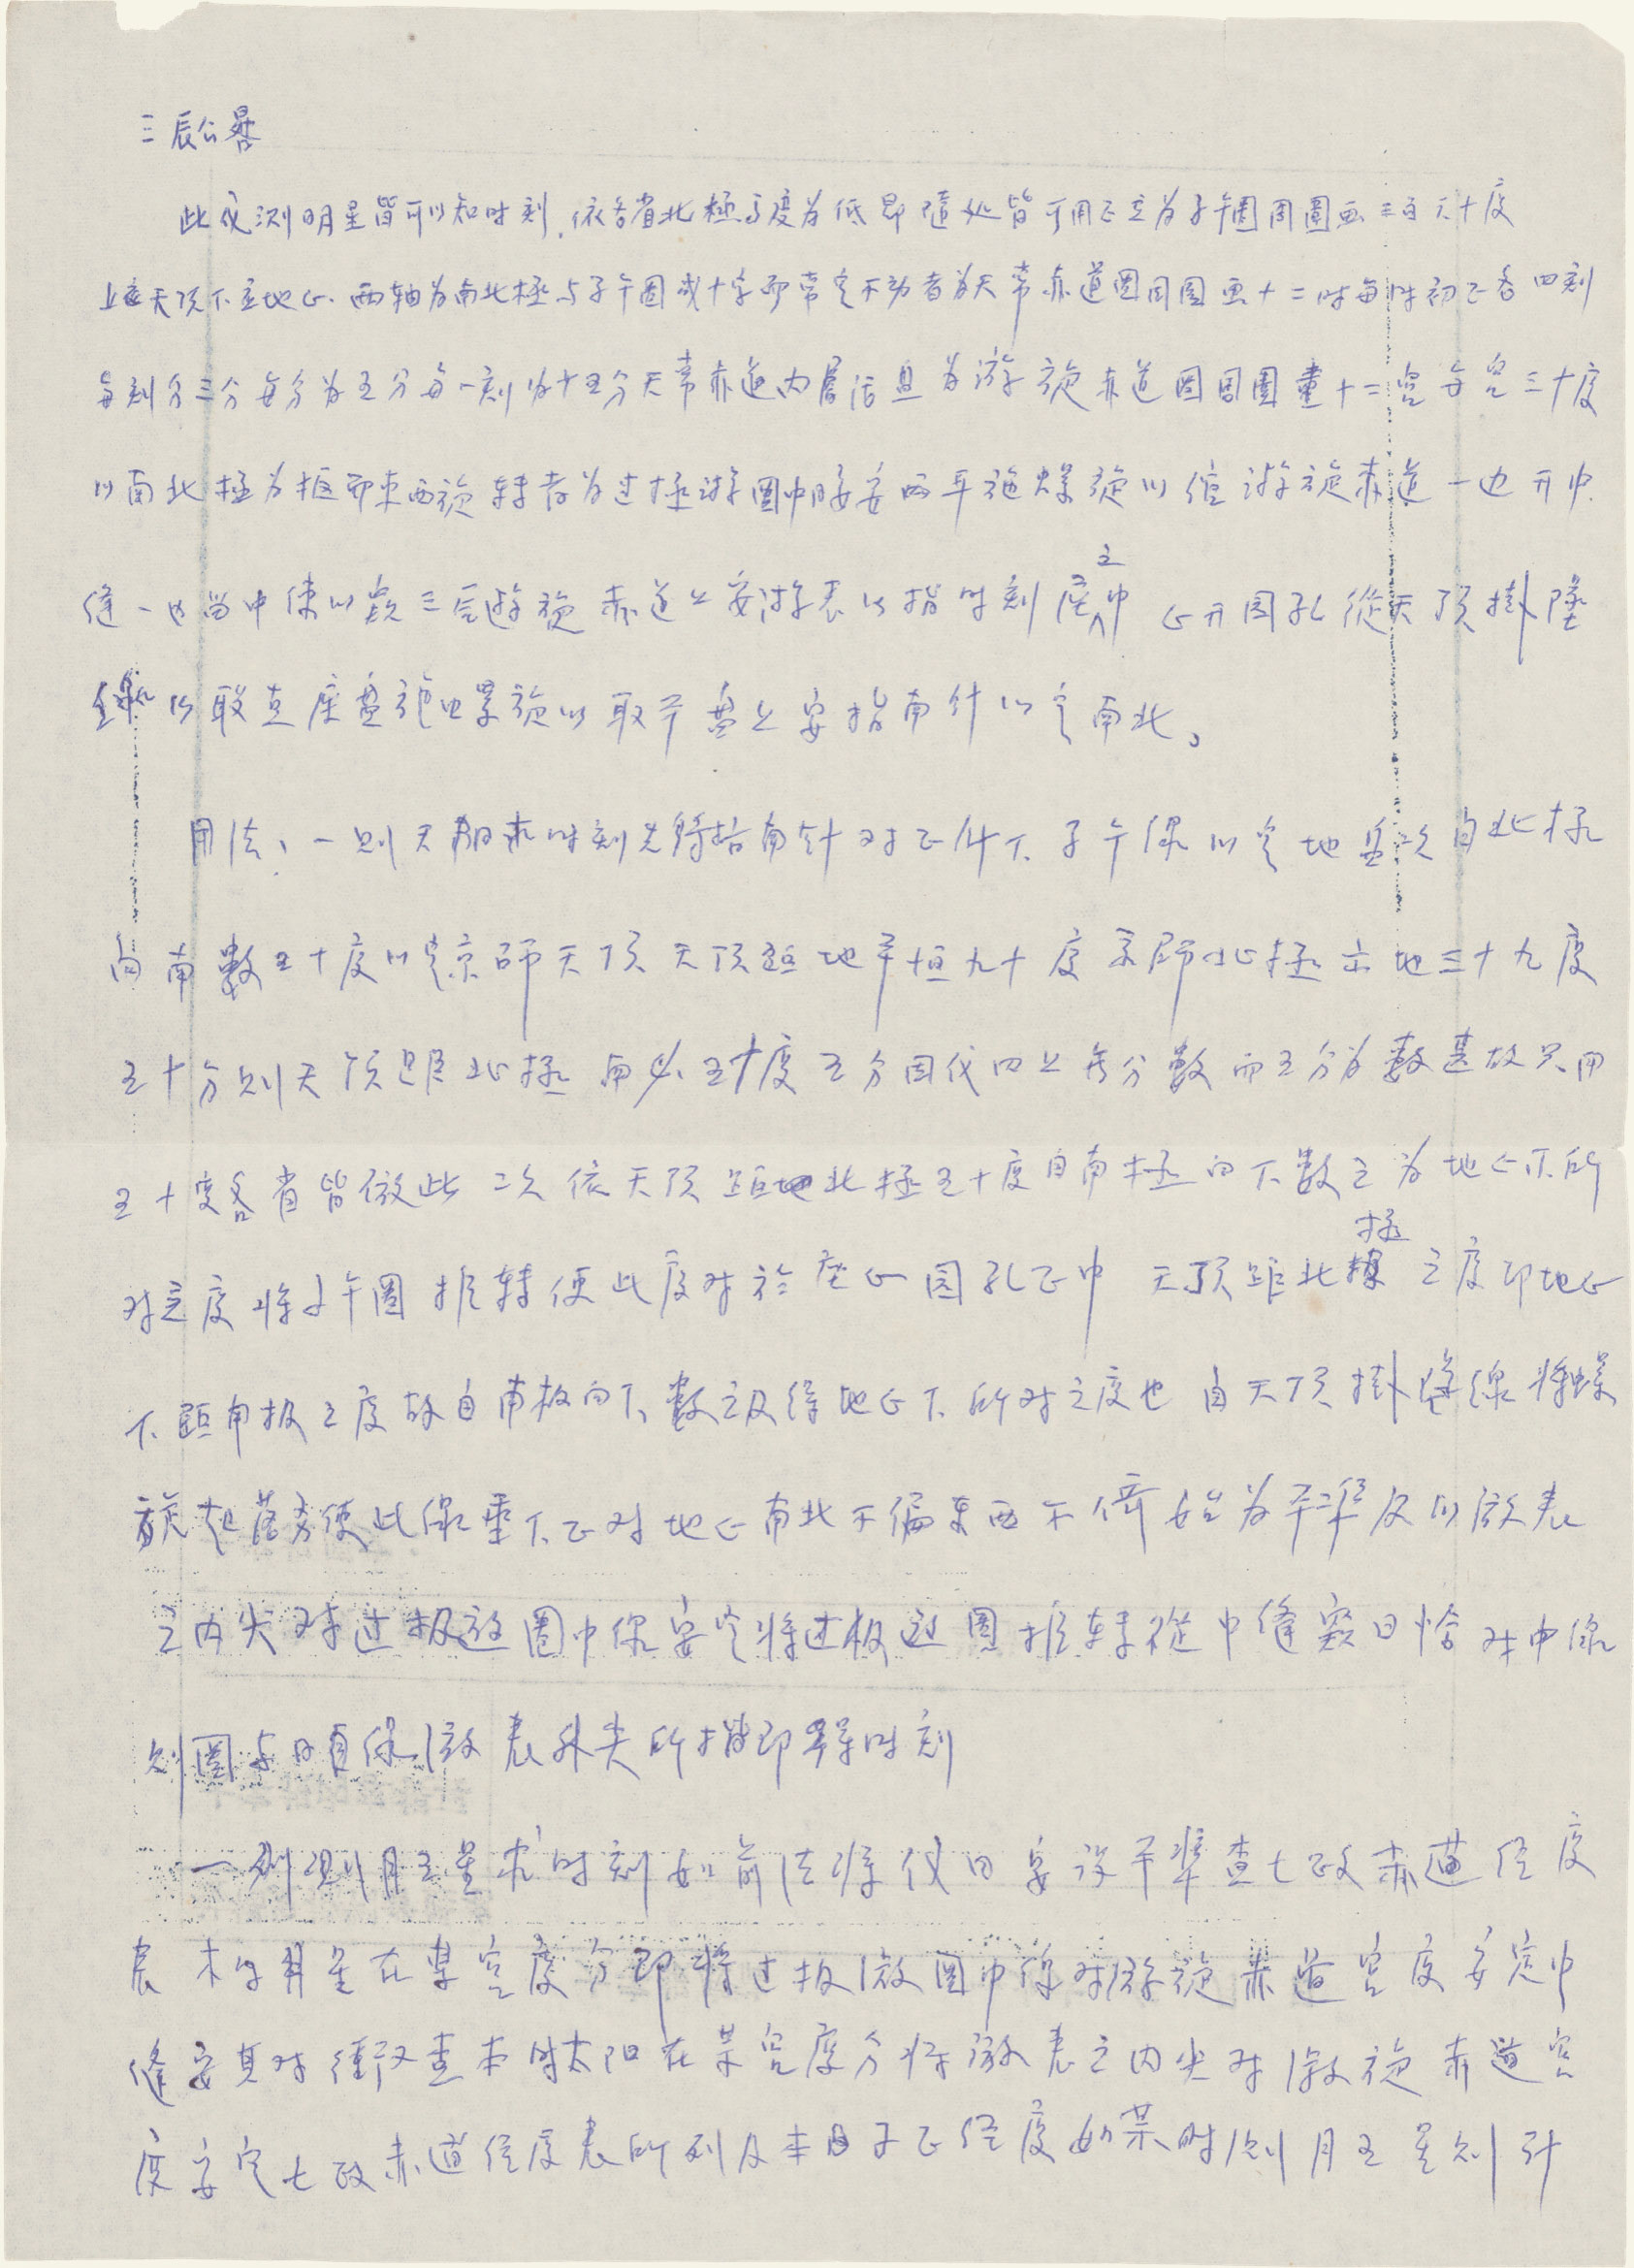 三辰公晷
此仪测明星皆可以知时刻.依各省北極高度为低即隨处皆可用正立为子午圈周圍画三百六十度
上应天顶下应地心.两轴为南北極与子午圈成十字而常定不动者为天常赤道圈周圍画十二时每时初正各四刻
每刻分三分每分为五分每一刻为十五分天常赤道内層活且为游旋赤道圈周圍畫十二宮每宮三十度
以南北極为枢而東西旋轉者为过極游圈中腰安两耳施螺旋以 游旋赤道一边开中
縫一边当中 以 三辰游旋赤道上安游表以指时刻座之中心开圆孔從天顶掛墜
線以取直座盤施螺旋以取平盤上安指南针以定南北。
用法、一则天 求时刻先将指南针对正 下子午線以定地盘次自北極
向南數五十度以定京師天顶天顶距地平恒九十度京師北極出地三十九度
五十分则天顶距北極 必五十度五分因仪四上 分數而五分为數甚 只用
五十度各省皆倣此 二次依天顶距地北極五十度自南極向下數之为地心下所
对之度将子午圈推轉使此度对於座心圆孔正中 天顶距北極之度即地心
下距南极之度故自南极向下數之 得地心下所对之度也 自天顶掛墜線将螺
旋起落 使此線垂下正对地心南北不偏東西不倚始为平準及以游表
之内尖对过极游圈中線安定将过极游圈推轉從中縫窺日恰对中線
则圈与日 線游表外尖所指即 时刻
一则测月五星求时刻如前法将仪 安设平準查七政赤道经度
表本时 星在某宮度分即将过极游圈中線对游旋赤道宮度安定中
縫安其对衝又查本时太阳在某宮度分将游表之内尖对游旋赤道宮
度安定七政赤道经度表所列及本日子正经度如某时测月五星则计